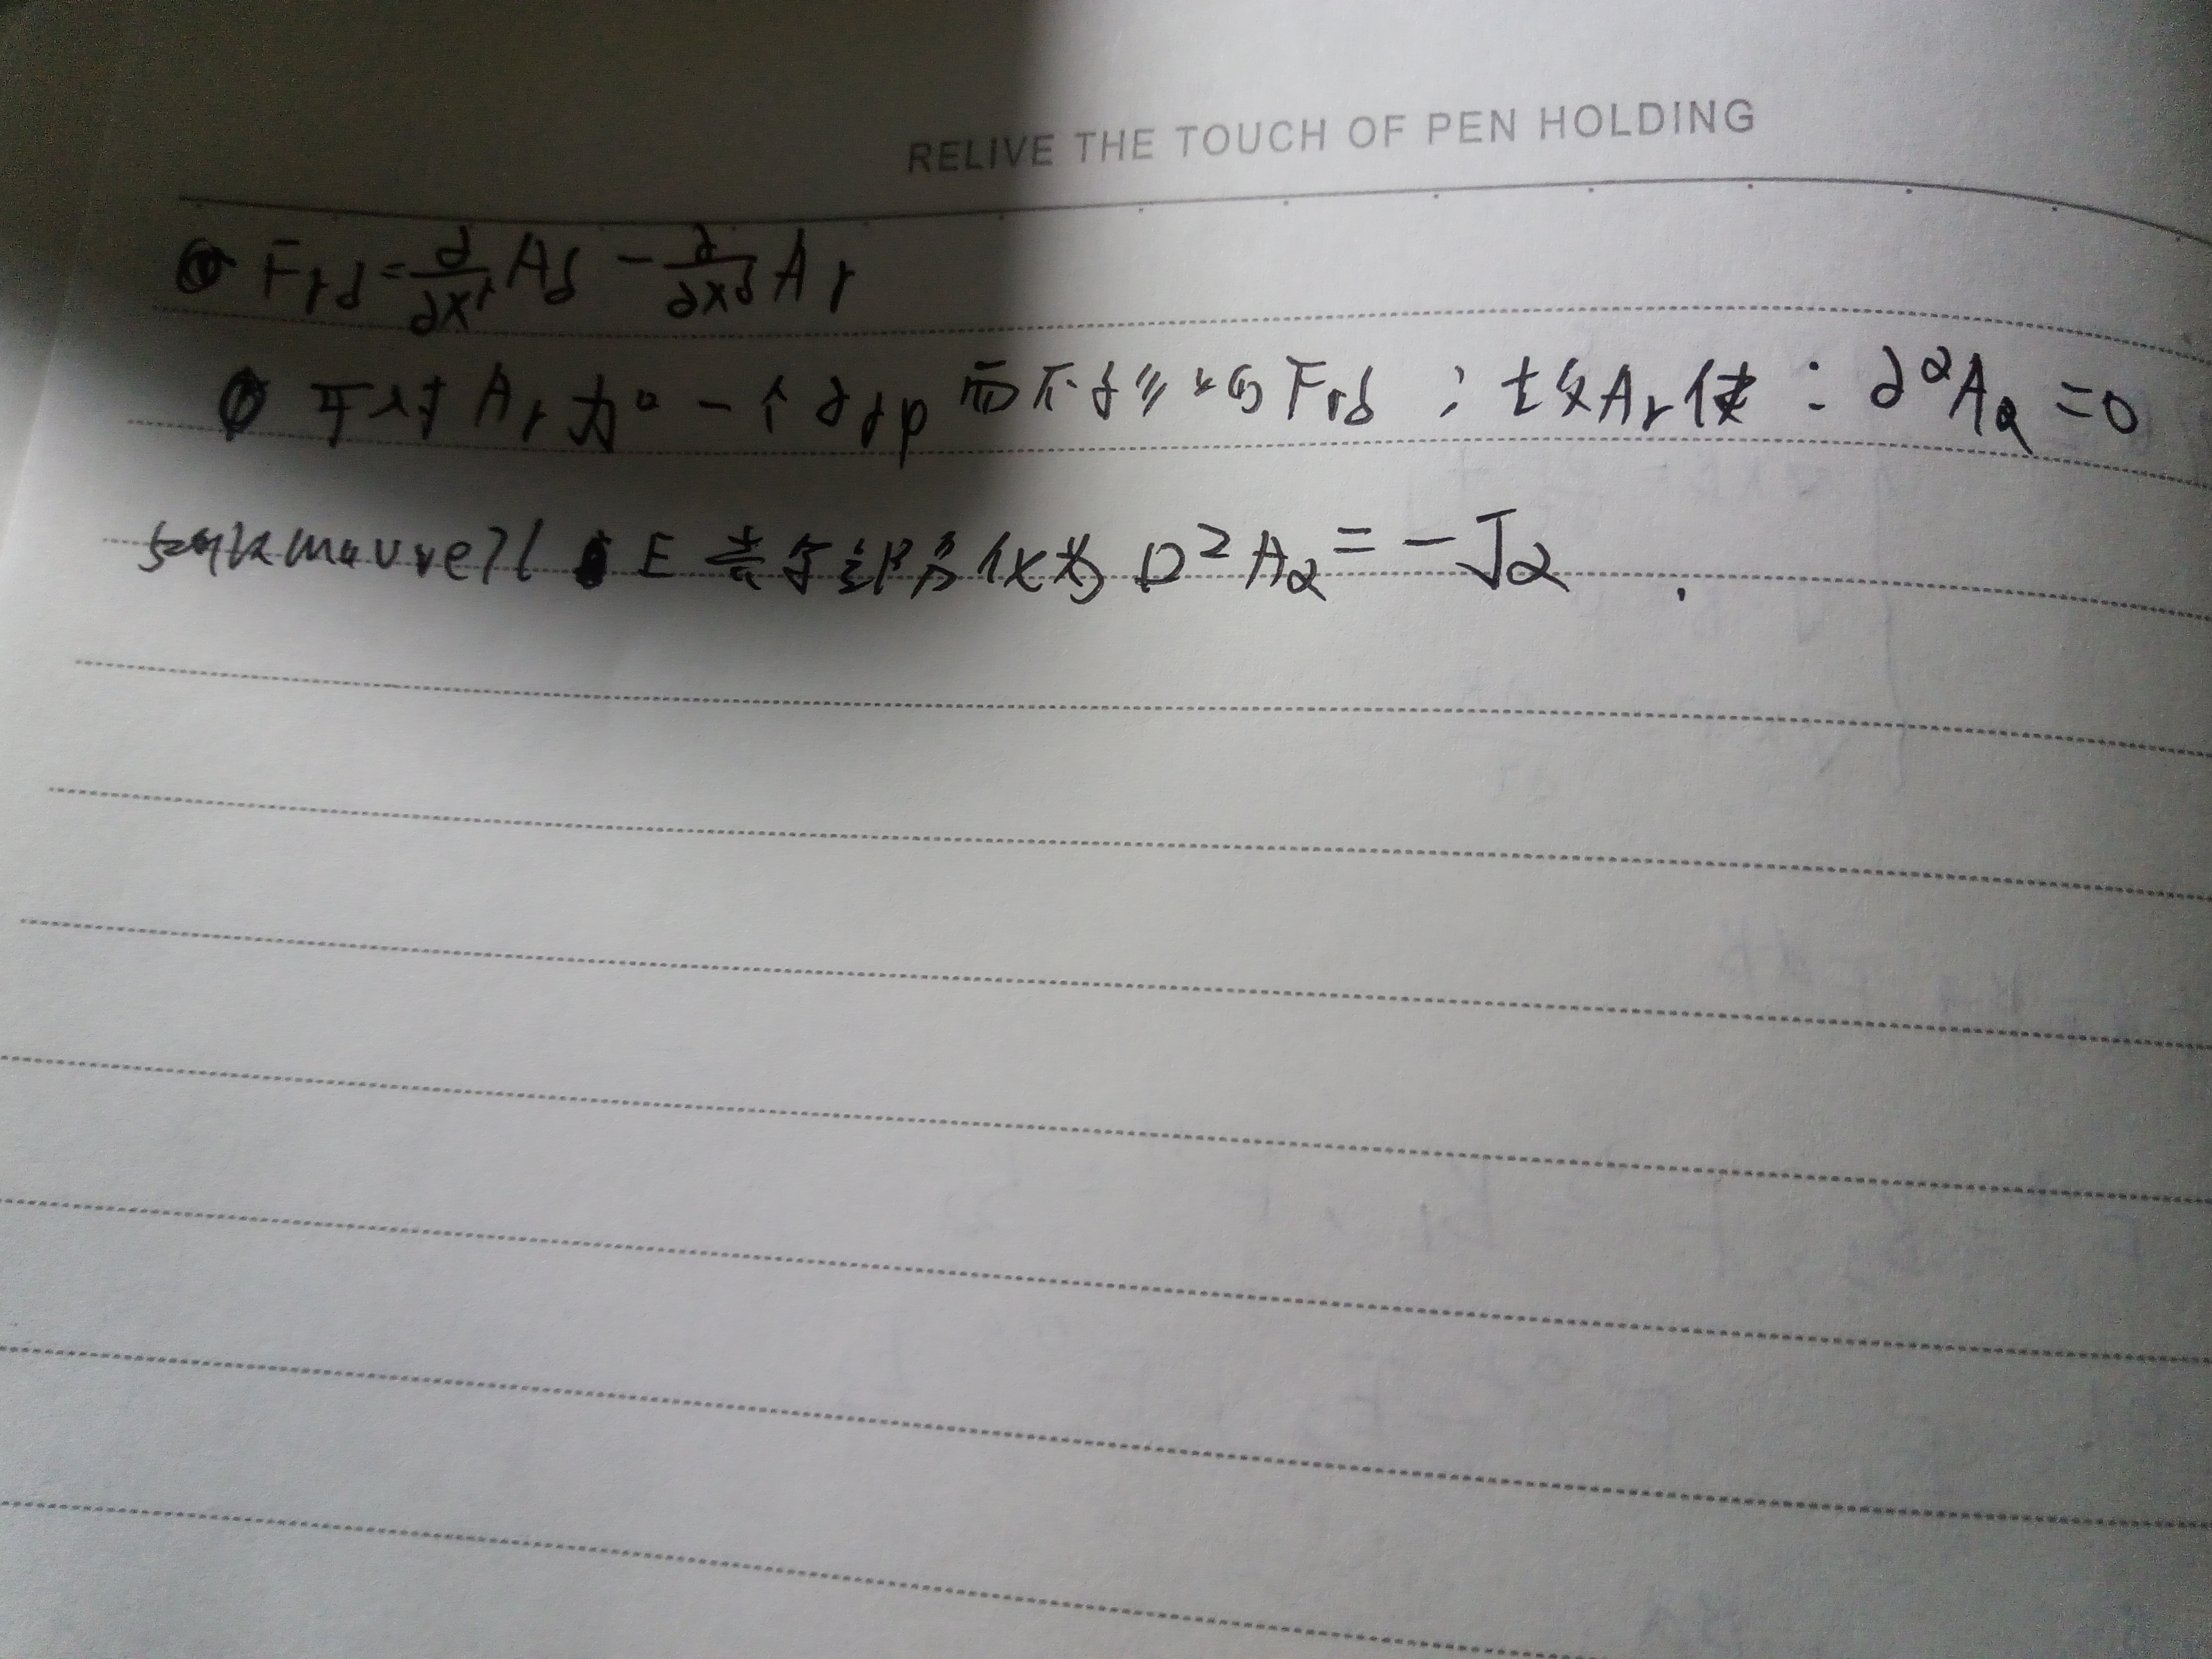 RELIVE THE TOUCH OF PEN HOLDING
Fγδ = ∂/∂xγ Aδ − ∂/∂xδ Aγ
可对 Aγ 加 一个 ∂γφ 而不影响 Fγδ ; 故 Aγ 使 : ∂^αAα = 0
maxwell E 化为 □²Aα = −Jα .